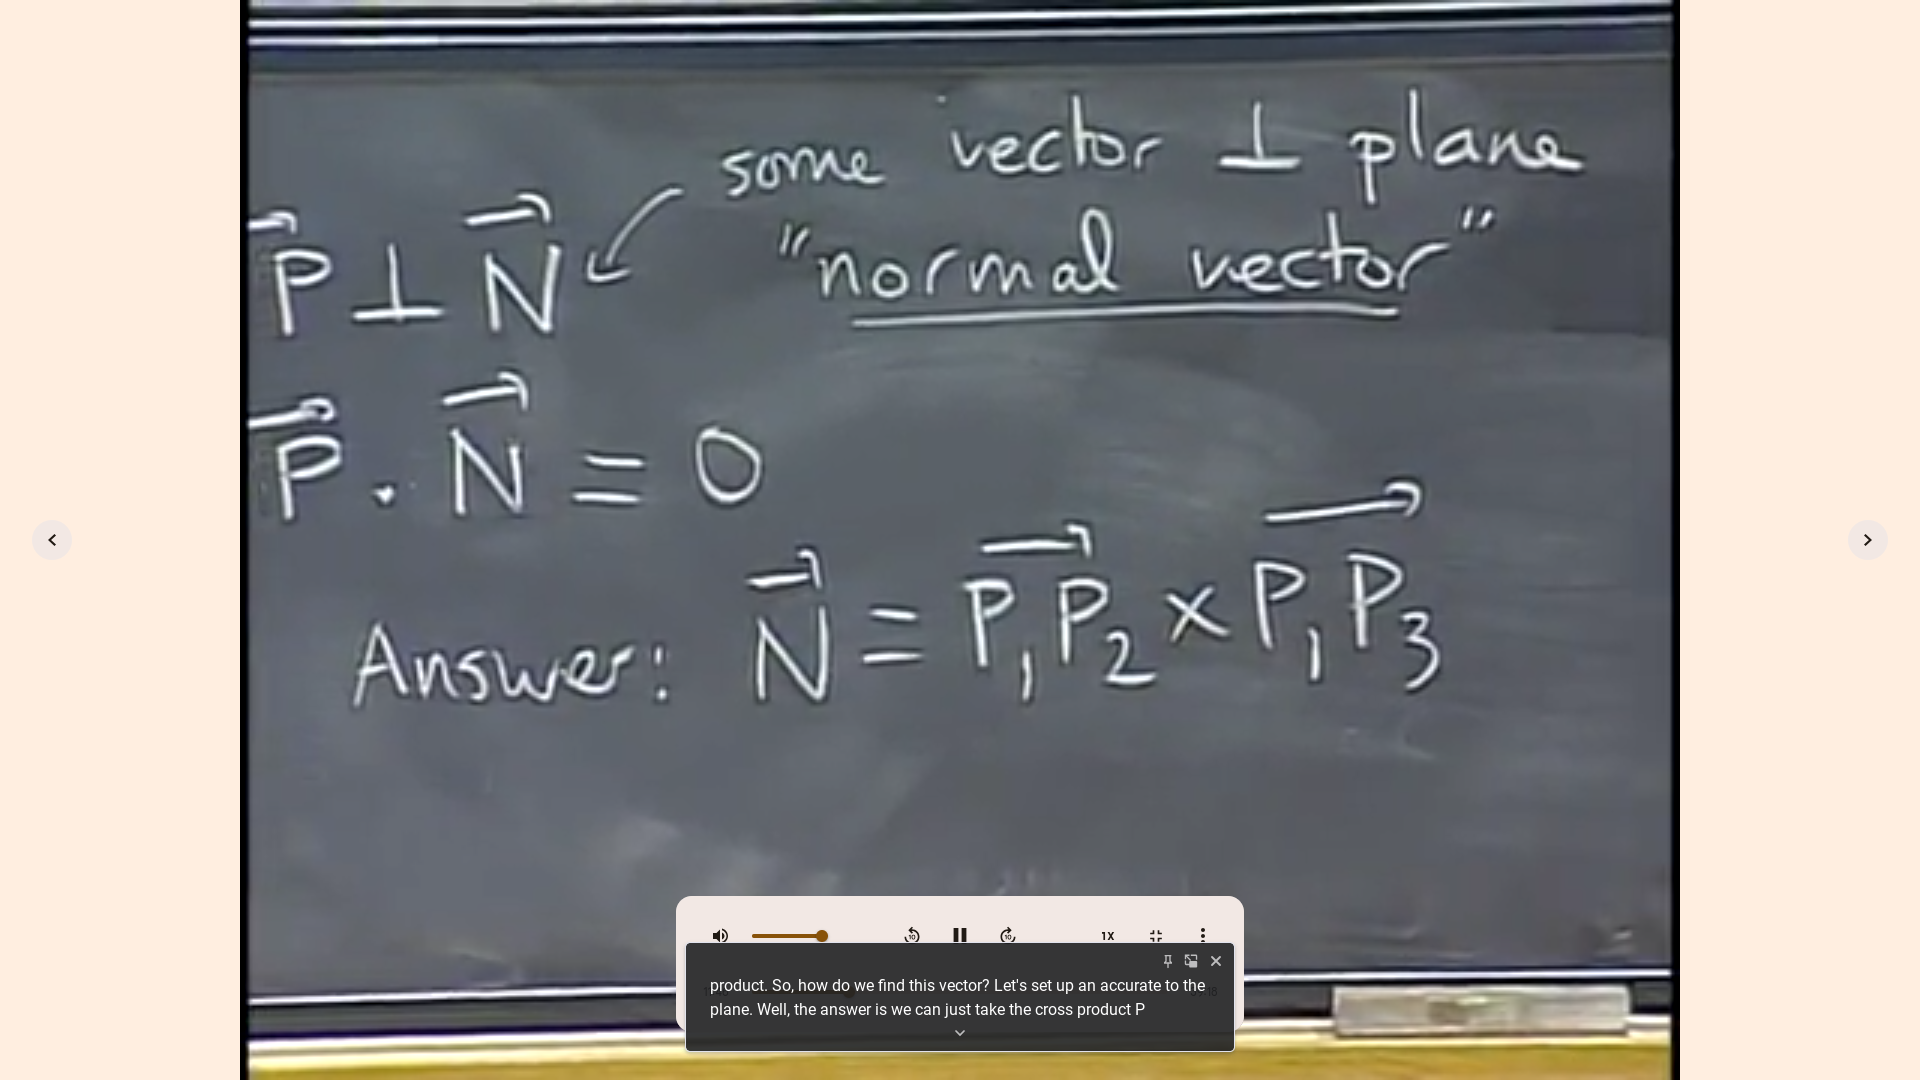 some vector ⊥ plane
P⃗ ⊥ N⃗
"normal vector"
P⃗ · N⃗ = 0
Answer: N⃗ = P₁P₂⃗ × P₁P₃⃗
1X
product. So, how do we find this vector? Let's set up an accurate to the
plane. Well, the answer is we can just take the cross product P